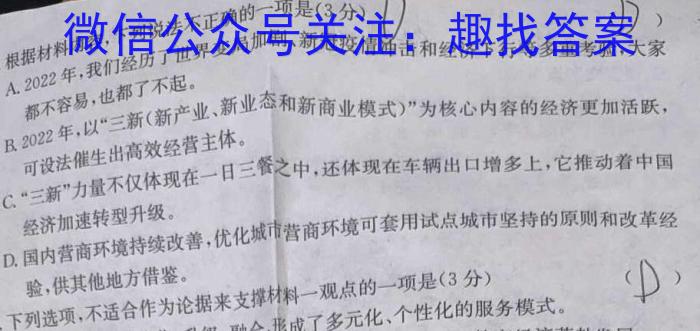 微信公众号关注：趣找答案
不正确的一项是(3分)
A. 2022年,我们经历了世界变局加剧、新冠疫情冲击和经济下行等多重考验,大家
都不容易,也都了不起。
B. 2022年,以“三新(新产业、新业态和新商业模式)”为核心内容的经济更加活跃,
可设法催生出高效经营主体。
C.“三新”力量不仅体现在一日三餐之中,还体现在车辆出口增多上,它推动着中国
经济加速转型升级。
D. 国内营商环境持续改善,优化城市营商环境可套用试点城市坚持的原则和改革经
验,供其他地方借鉴。
下列选项,不适合作为论据来支撑材料一观点的一项是(3分) (D)
融合,形成了多元化、个性化的服务模式。